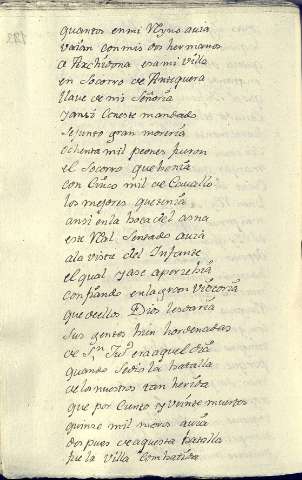 quantos en mi Reyno auia
vaian con mis dos hermanos
a Archidona esa mi villa
en Socorro de Antequera
llaue de mi Señoria
y ansi con este mandado
se junto gran moreria
ochenta mil peones fueron
el Socorro que benia
con Cinco mil de Cauallo
los mejores que tenia
ansi en la boca del asna
este Real Sentado auia
a la vista del Infante
el qual ya se apercebia
Confiando en la gran victoria
que de ellos Dios le daria
sus gentes bien hordenadas
de Sn Juo era aquel dia
quando se dio la batalla
de los nuestros tan herida
que por Ciento y veinte muertos
quince mil moros auia
despues de aquesta batalla
fue la villa Combatida